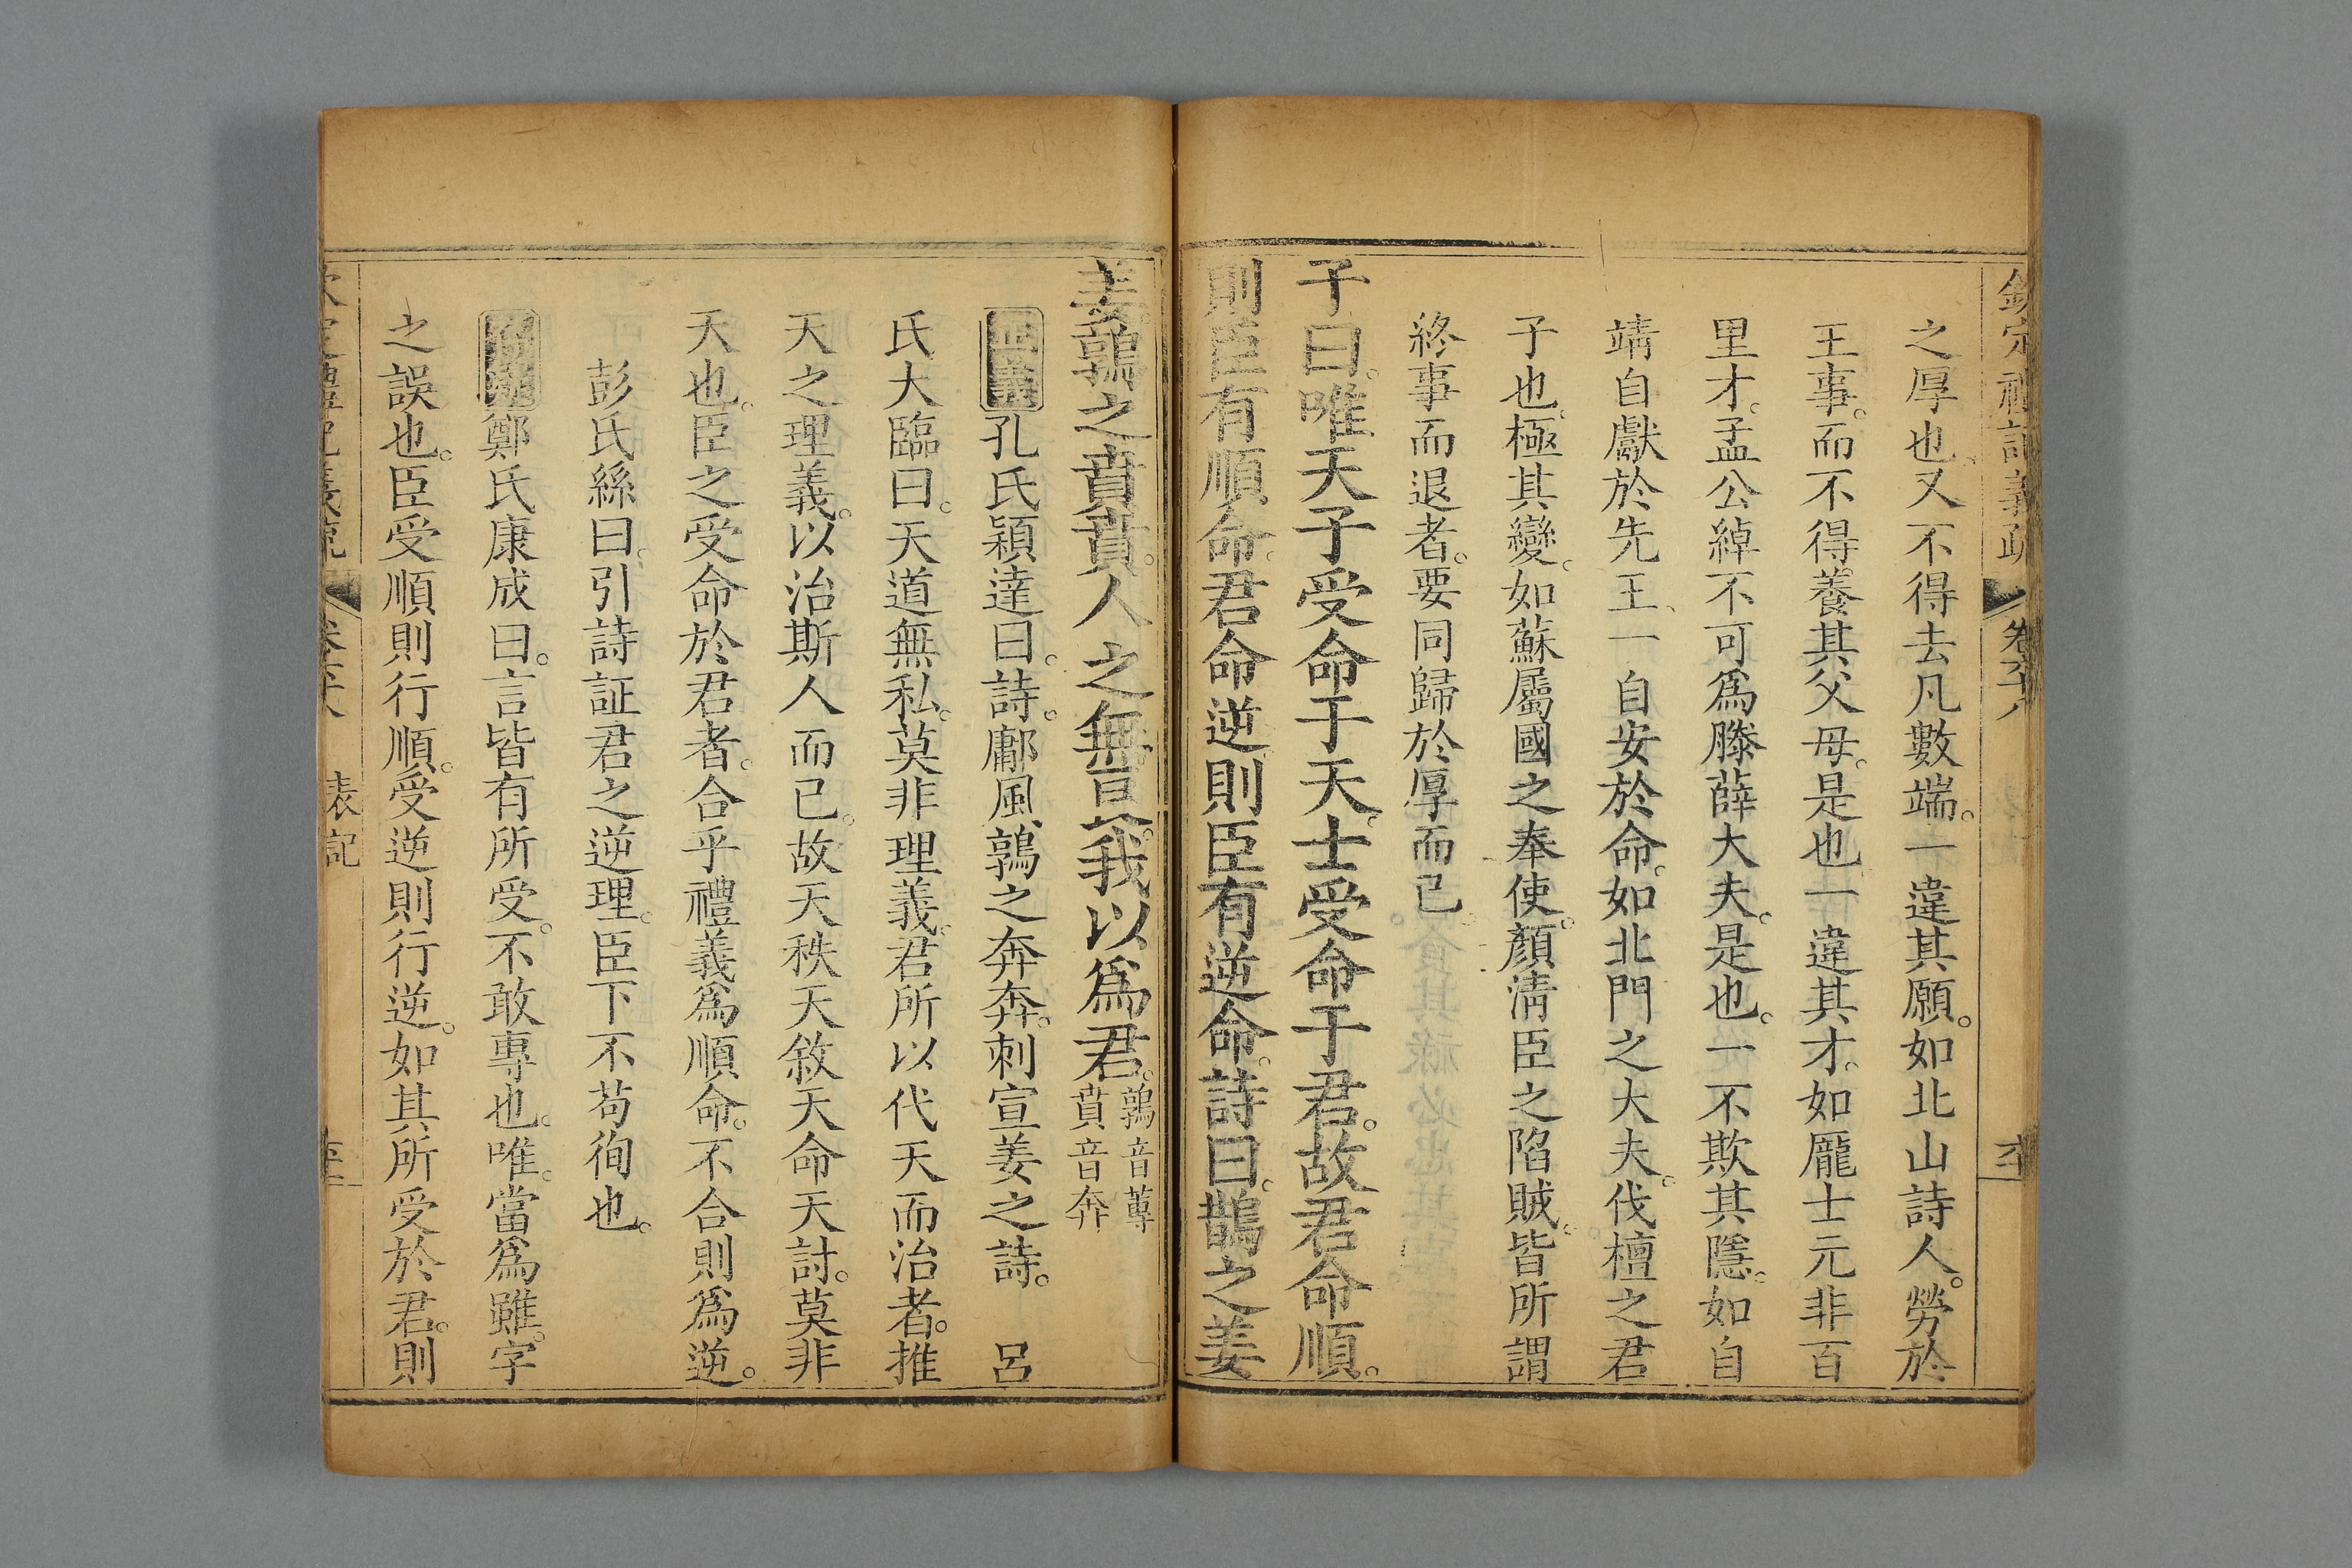 欽定禮記義疏 卷六十八
之厚也又不得去凡數端。一違其願。如北山詩人。勞於
王事。而不得養其父母。是也一違其才。如龐士元非百
里才。孟公綽不可爲滕薛大夫。是也。一不欺其隱。如自
靖自獻於先王、一自安於命。如北門之大夫。伐檀之君
子也。極其變。如蘇屬國之奉使。顏淸臣之陷賊。皆所謂
終事而退者。要同歸於厚而已。
子曰。唯天子受命于天。士受命于君。故君命順。
則臣有順命。君命逆則臣有逆命。詩曰。鵲之姜
姜。鶉之賁賁。人之無良。我以爲君。鶉音蓴賁音奔
正義孔氏穎達曰。詩。鄘風鶉之奔奔。刺宣姜之詩。 呂
氏大臨曰。天道無私。莫非理義。君所以代天而治者。推
天之理義。以治斯人而已。故天秩天敘天命天討。莫非
天也。臣之受命於君者。合乎禮義爲順命。不合則爲逆。
彭氏絲曰。引詩証君之逆理。臣下不苟徇也。
鄭氏康成曰。言皆有所受。不敢專也。唯。當爲雖。字
之誤也。臣受順則行順。受逆則行逆。如其所受於君。則
表記